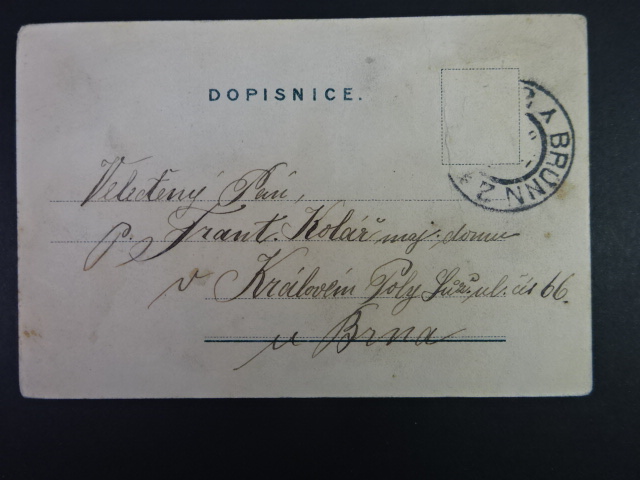 DOPISNICE.
BRÜNN 2
Velectěný Pan,
p. Frant. Kolář maj. domu
v Králověm Poly ul. čís 66.
u Brna